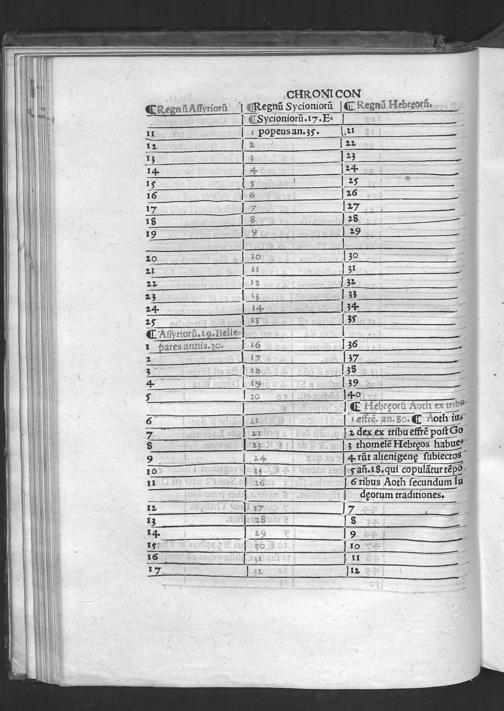 CHRONICON
¶ Regnū Assyriorū | ¶ Regnū Sycioniorū | ¶ Regnū Hebręorū.
¶ Sycioniorū. 17. E-
11 | 1 popeus an. 35. | 21
12 | 2 | 22
13 | 3 | 23
14 | 4 | 24
15 | 5 | 25
16 | 6 | 26
17 | 7 | 27
18 | 8 | 28
19 | 9 | 29
20 | 10 | 30
21 | 11 | 31
22 | 12 | 32
23 | 13 | 33
24 | 14 | 34
25 | 15 | 35
¶ Assyriorū. 19. Belle
1 pares annis. 30. | 16 | 36
2 | 17 | 37
3 | 18 | 38
4 | 19 | 39
5 | 20 | 40
¶ Hebręorū Aoth ex tribu
6 | 21 | 1 effrē. an. 80. ¶ Aoth iu-
7 | 22 | 2 dex ex tribu effrē post Go
8 | 23 | 3 thomelē Hebręos habue-
9 | 24 | 4 rūt alienigenę subiectos
10 | 25 | 5 an. 18. qui copulātur tēpo
11 | 26 | 6 ribus Aoth secundum Iu
dęorum traditiones.
12 | 27 | 7
13 | 28 | 8
14 | 29 | 9
15 | 30 | 10
16 | 31 | 11
17 | 32 | 12